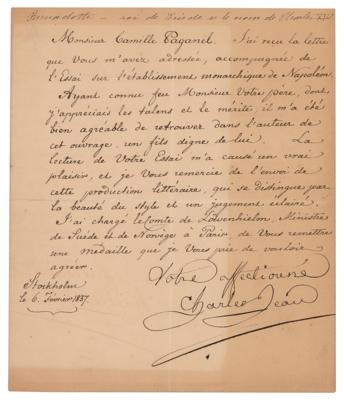 Bernadotte - roi de Suède s. le nom de Charles XIV
Monsieur Camille Paganel. J'ai reçu la lettre
que Vous m'avez adressée, accompagnée de
l'Essai sur l'établissement monarchique de Napoléon.
Ayant connu feu Monsieur Votre père, dont
j'appréciais les talens et le mérite, il m'a été
bien agréable de retrouver dans l'auteur de
cet ouvrage, un fils digne de lui. La
lecture de Votre Essai m'a causé un vrai
plaisir, et je Vous remercie de l'envoi de
cette production littéraire, qui se distingue par
la beauté du style et un jugement éclairé.
J'ai chargé le Comte de Löwenhielm, Ministre
de Suède et de Norvège à Paris, de Vous remettre
une medaille que je Vous prie de vouloir
agréer.
Votre affectionné
Stockholm
le 6. Fevrier 1837.
Charles Jean